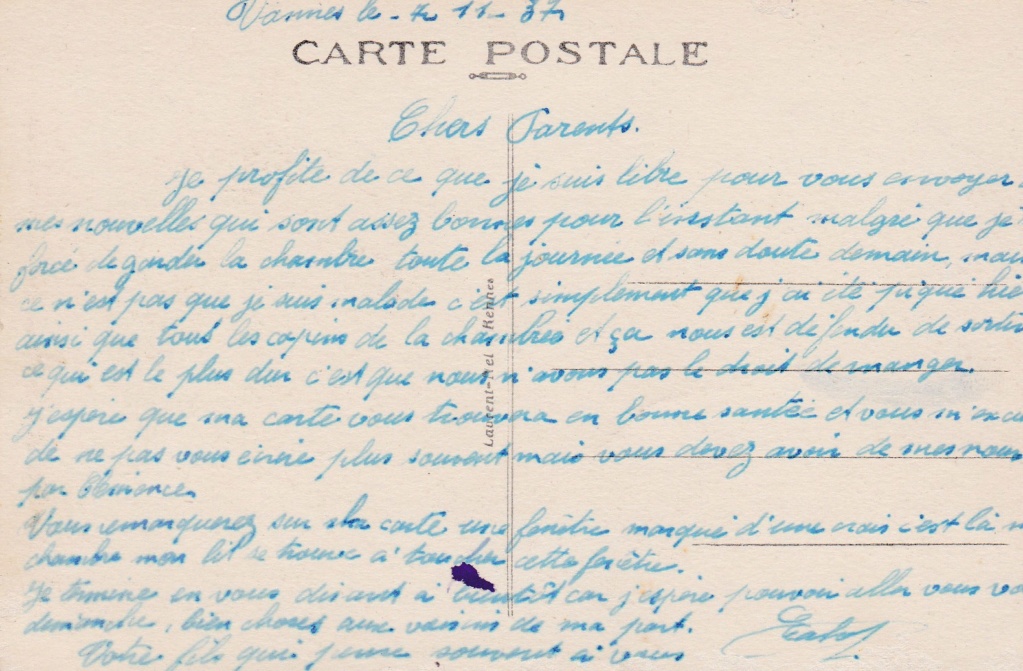 Vannes le - 4 11 - 37
CARTE POSTALE
Chers Parents.
Je profite de ce que je suis libre pour vous envoyer
mes nouvelles qui sont assez bonnes pour l'instant malgré que je
forcé de garder la chambre toute la journée et sans doute demain, mais
ce n'est pas que je suis malade c'est simplement que j'ai été piqué hie
ainsi que tous les copins de la chambrée et ça nous est défendu de sortir
ce qui est le plus dur c'est que nous n'avons pas le droit de manger.
J'espère que ma carte vous trouvera en bonne santée et vous m'excu
de ne pas vous écrire plus souvent mais vous devez avoir de mes nouv
par
Vous remarquerez sur la carte une fenêtre marqué d'une croix c'est là m
chambre mon lit se trouve a toucher cette fenêtre.
Je termine en vous disant à bientôt car j'espère pouvoir aller vous vo
dimanche, bien choses aux voisins de ma part.
Votre fils qui pense souvent à vous
Laurent-Nel Rennes